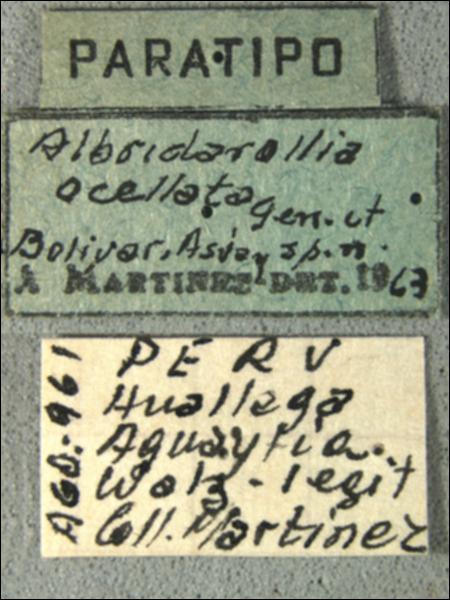 PARATIPO
Albridarollia
ocellata Gen. et
Bolivar, Asiay sp. n.
A MARTINEZ DET. 1963
PERU
Huallaga
Aguaytia.
Walz - legit
Coll. Martinez
AGO.-961